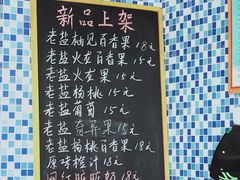 新品上架
老盐柚见百香果18元
老盐火龙百香果15元
老盐火龙果15元
老盐杨桃15元
老盐葡萄15元
老盐奇异果15元
老盐杨桃百香果18元
原味橙汁18元
网红脏脏奶18元